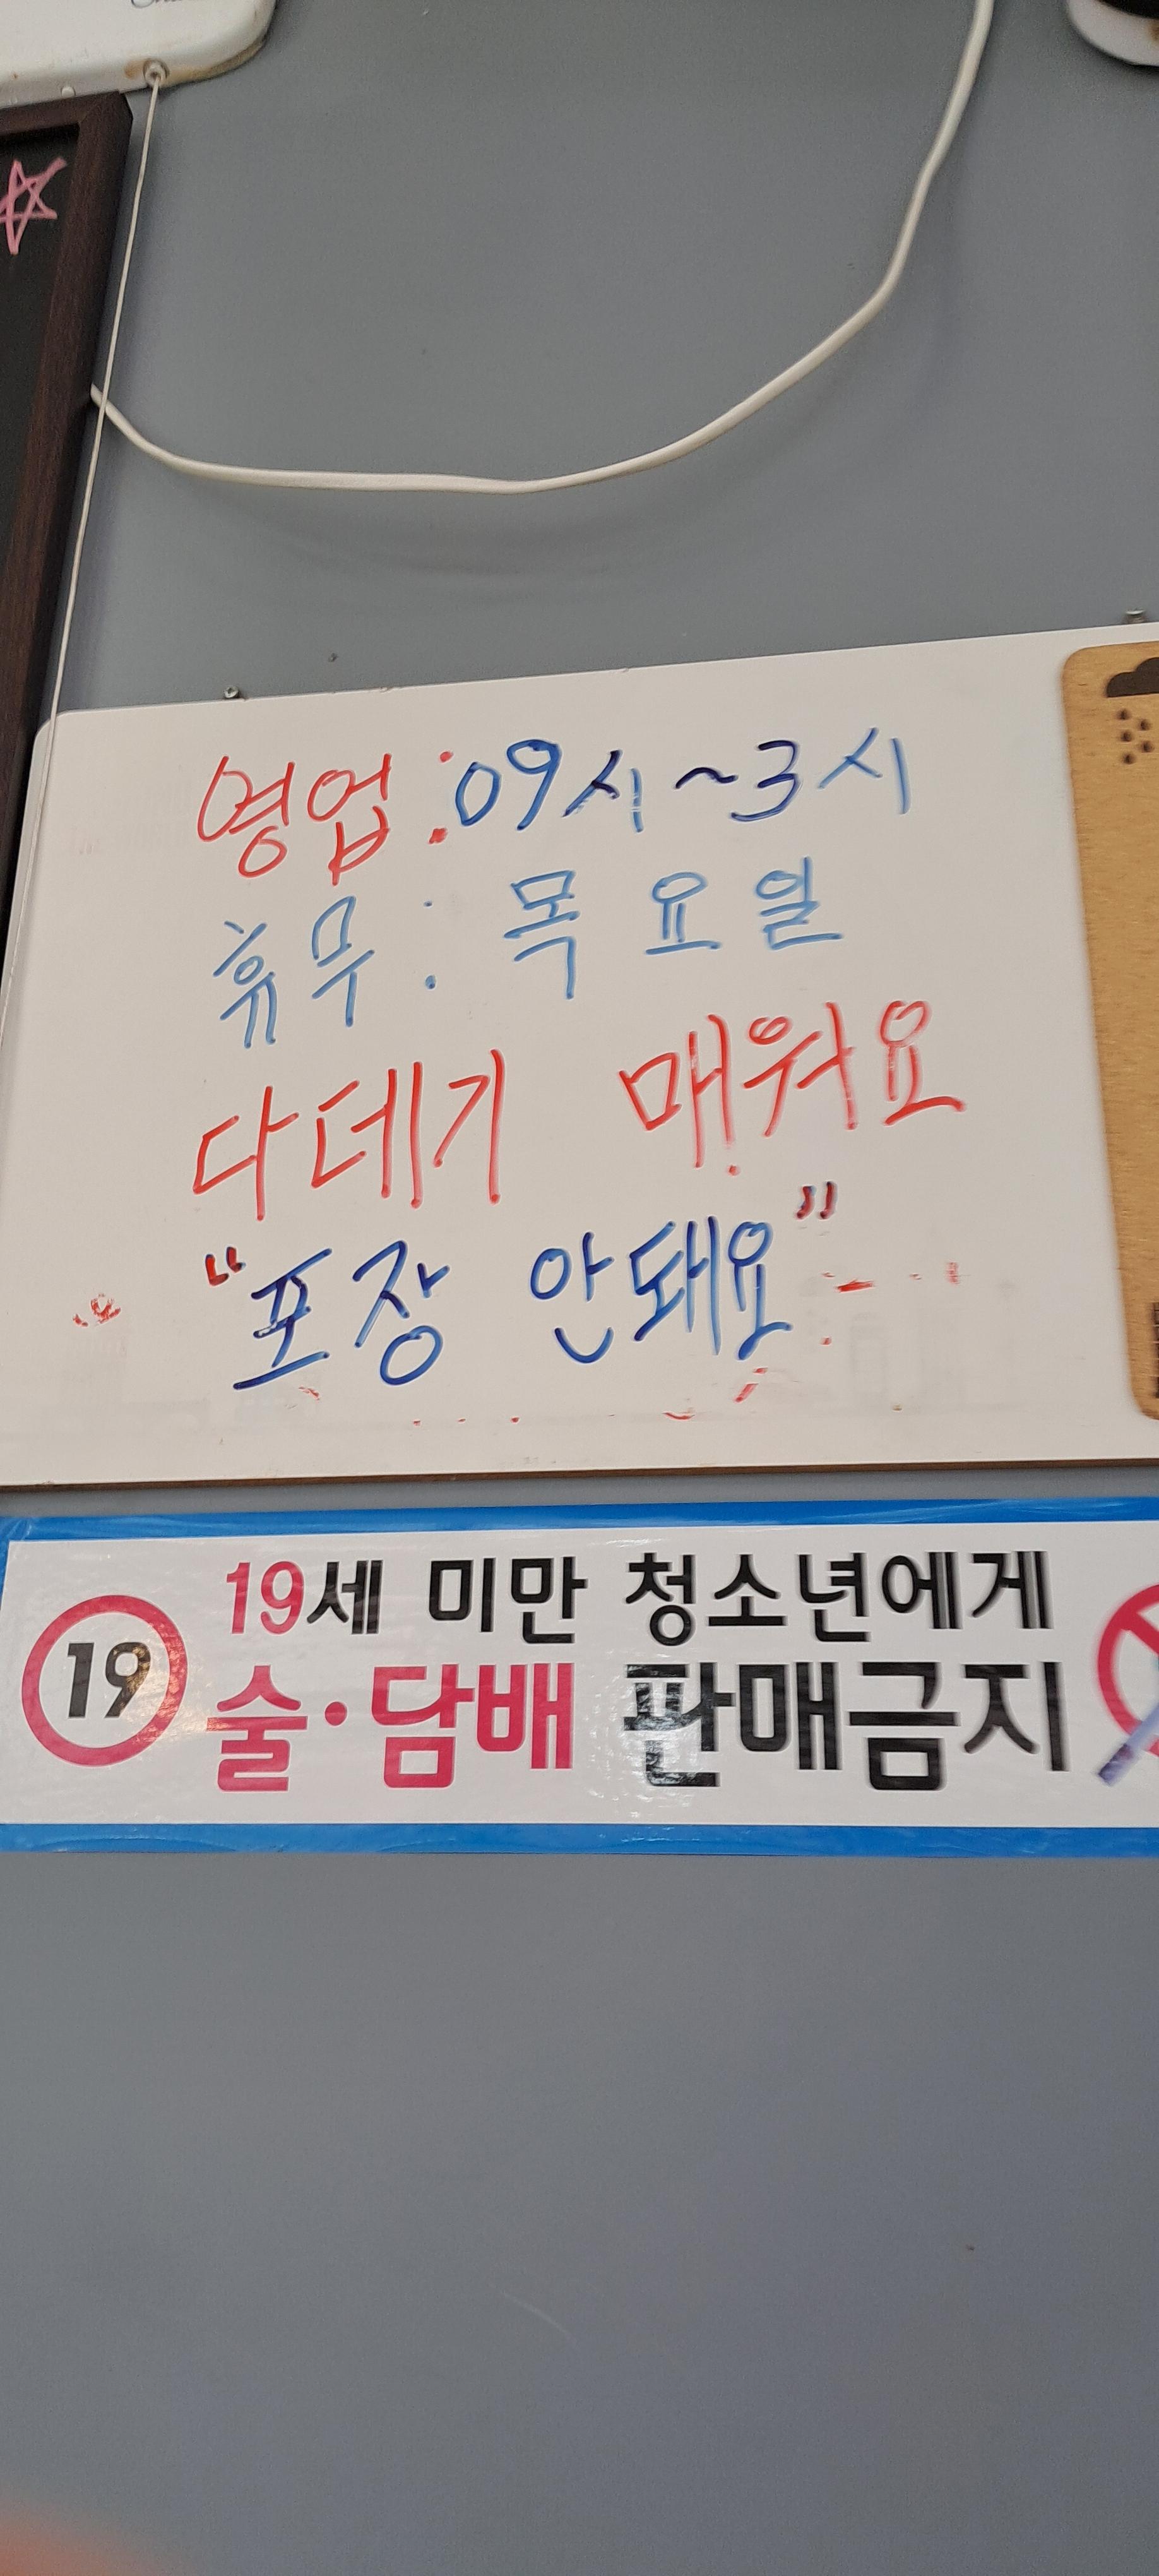 영업 : 09시~3시
휴무 : 목요일
다데기 매워요
"포장 안돼요"
19
19세 미만 청소년에게
술·담배 판매금지